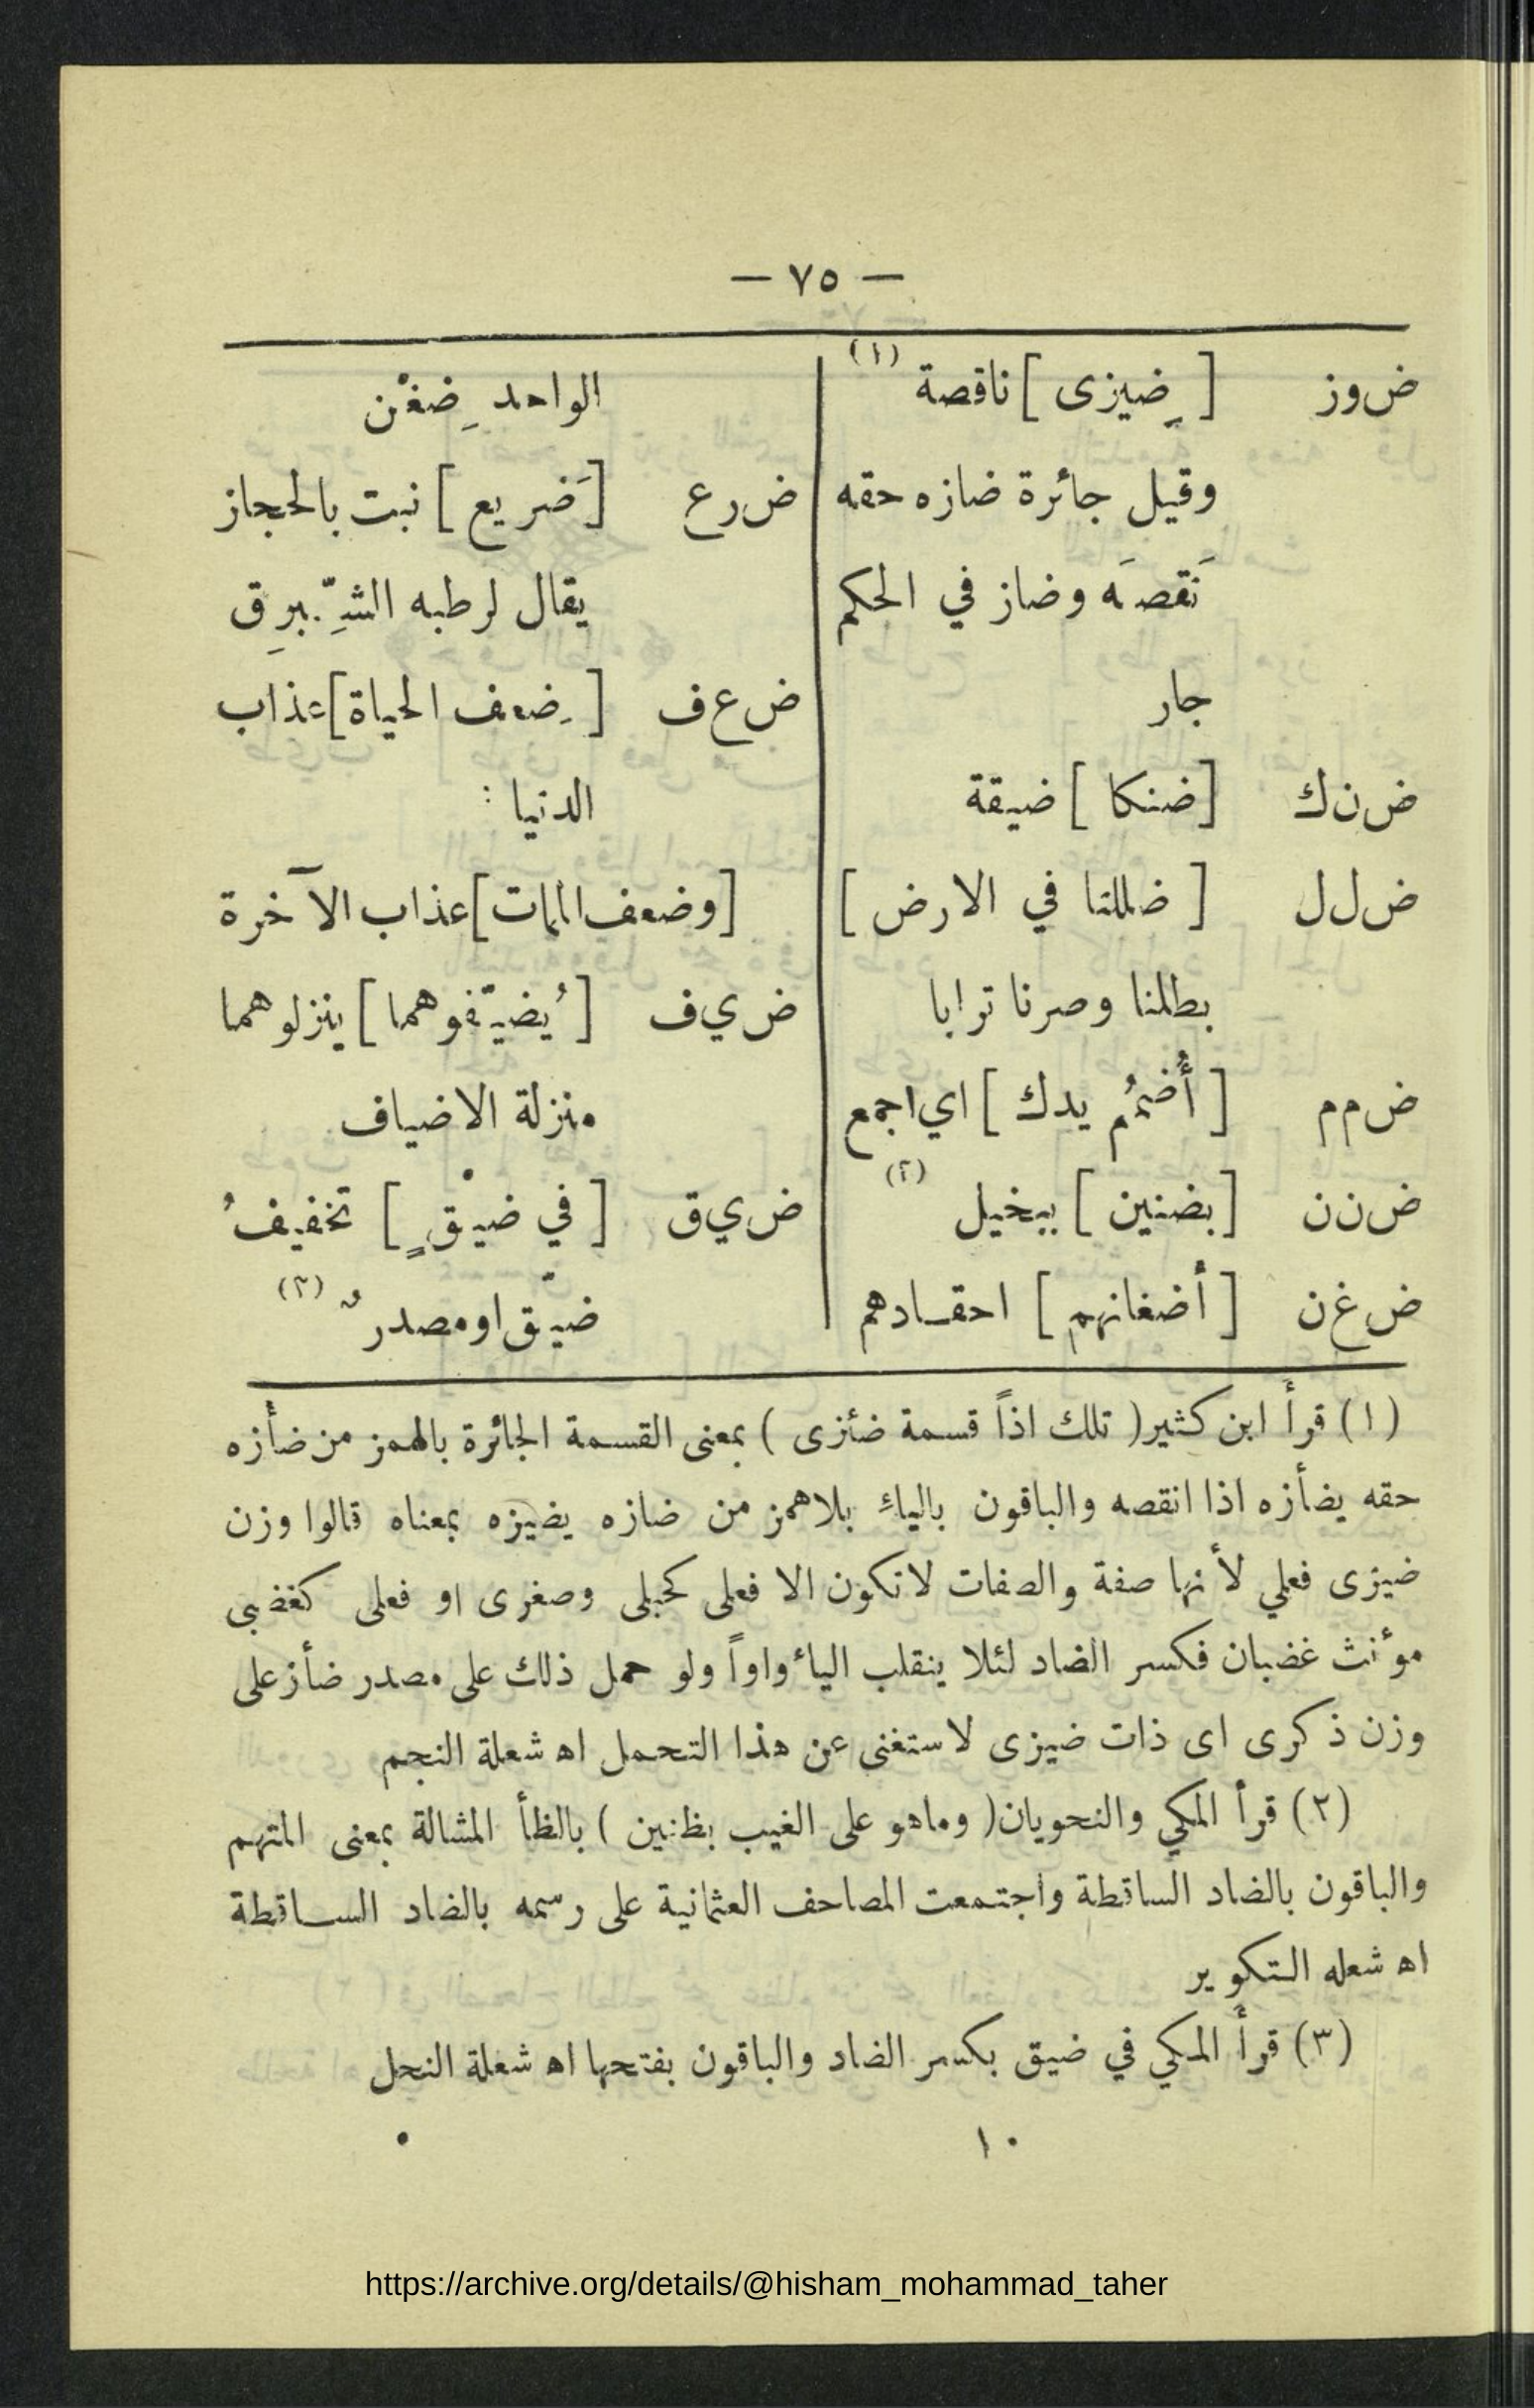 — ٧٥ —
ض وز [ ضِيزى ] ناقصة (١)
وقيل جائرة ضازه حقه
نَقصَه وضاز في الحكم
جار
ض ن ك [ ضنكا ] ضيقة
ض ل ل [ ضللنا في الارض ]
بطلنا وصرنا ترابا
ض م م [ أُضمُم يدك ] اي اجمع
ض ن ن [ بضنين ] ببخيل (٢)
ض غ ن [ أضغانهم ] احقـادهم
الواحد ضِغْن
ض ر ع [ ضَريع ] نبت بالحجاز
يقال لرطبه الشِّبرِق
ض ع ف [ ضِعف الحياة ] عذاب
الدنيا :
[ وضعف المات ] عذاب الآخرة
ض ي ف [ يُضيّفوهما ] ينزلوهما
منزلة الاضياف
ض ي ق [ في ضيْقٍ ] تخفيفُ
ضيّق او مصدرٌ (٣)
(١) قرأ ابن كثير ( تلك اذاً قسمة ضئزى ) بمعنى القسمة الجائرة بالهمز من ضأزه
حقه يضأزه اذا انقصه والباقون بالياءِ بلا همز من ضازه يضيزه بمعناه قالوا وزن
ضيزى فعلي لأنها صفة والصفات لا تكون الا فعلى كحبلى وصغرى او فعلى كغضبى
مؤنث غضبان فكسر الضاد لئلا ينقلب الياءُ واواً ولو حمل ذلك على مصدر ضأز على
وزن ذكرى اى ذات ضيزى لاستغنى عن هذا التحمل اه شعلة النجم
(٢) قرأ المكي والنحويان ( وما هو على الغيب بظنين ) بالظأ المشالة بمعنى المتهم
والباقون بالضاد الساقطة واجتمعت المصاحف العثمانية على رسمه بالضاد الساقطة
اه شعله التكوير
(٣) قرأ المكي في ضيق بكسر الضاد والباقون بفتحها اه شعلة النحل
١٠
https://archive.org/details/@hisham_mohammad_taher